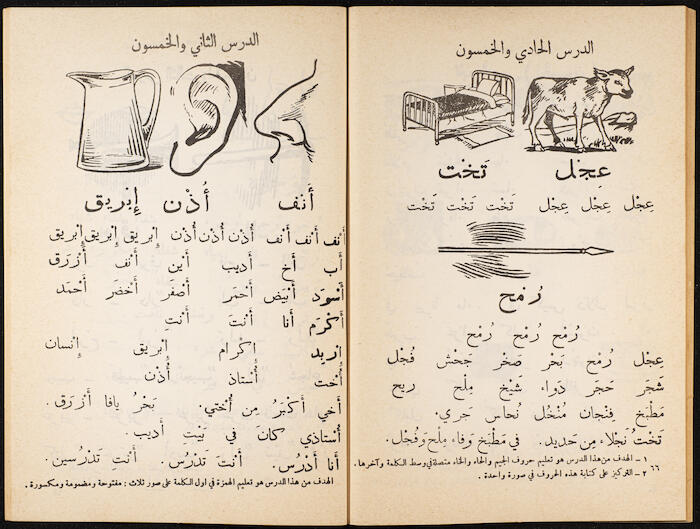 الدرس الحادي والخمسون
عِجْل تَخْت
عِجْل عِجْل عِجْل تَخْت تَخْت تَخْت
رُمْح
رُمْح رُمْح رُمْح
عِجْل رُمْح بَحْر صَخْر جَحْش فُجْل
شَجَر حَجَر دَواء شَيْخ مِلْح ريح
مَطْبَخ فِنْجان مُنْخُل نُحاس جَري
تَخْتُ نَجْلاء مِن حَديد. في مَطْبَخِ وَفاء مِلْح وَفُجْل.
١ - الهدف من هذا الدرس هو تعليم حروف الجيم والحاء والخاء متصلة في وسط الكلمة وآخرها.
٢ - التركيز على كتابة هذه الحروف في صورة واحدة.
٦٦
الدرس الثاني والخمسون
أَنْف أُذْن إِبْريق
أَنْف أَنْف أَنْف أُذْن أُذْن أُذْن إِبْريق إِبْريق إِبْريق
أَب أَخ أَديب أَيْن أَنْف أَزْرَق
أَسْوَد أَبْيَض أَحْمَر أَصْفَر أَخْضَر أَحْمَد
أَكْرَم أَنا أَنْتَ أَنْتِ
إِكْرام إِبْريق إِنْسان
أُخْت أُسْتاذ أُذْن
أَخي أَكْبَرُ مِن أُخْتي. بَحْرُ يافا أَزْرَق.
أُسْتاذي كانَ في بَيْتِ أَديب.
أَنا أَدْرُس. أَنْتَ تَدْرُس. أَنْتِ تَدْرُسين.
الهدف من هذا الدرس هو تعليم الهمزة في اول الكلمة على صور ثلاث : مفتوحة ومضمومة ومكسورة.